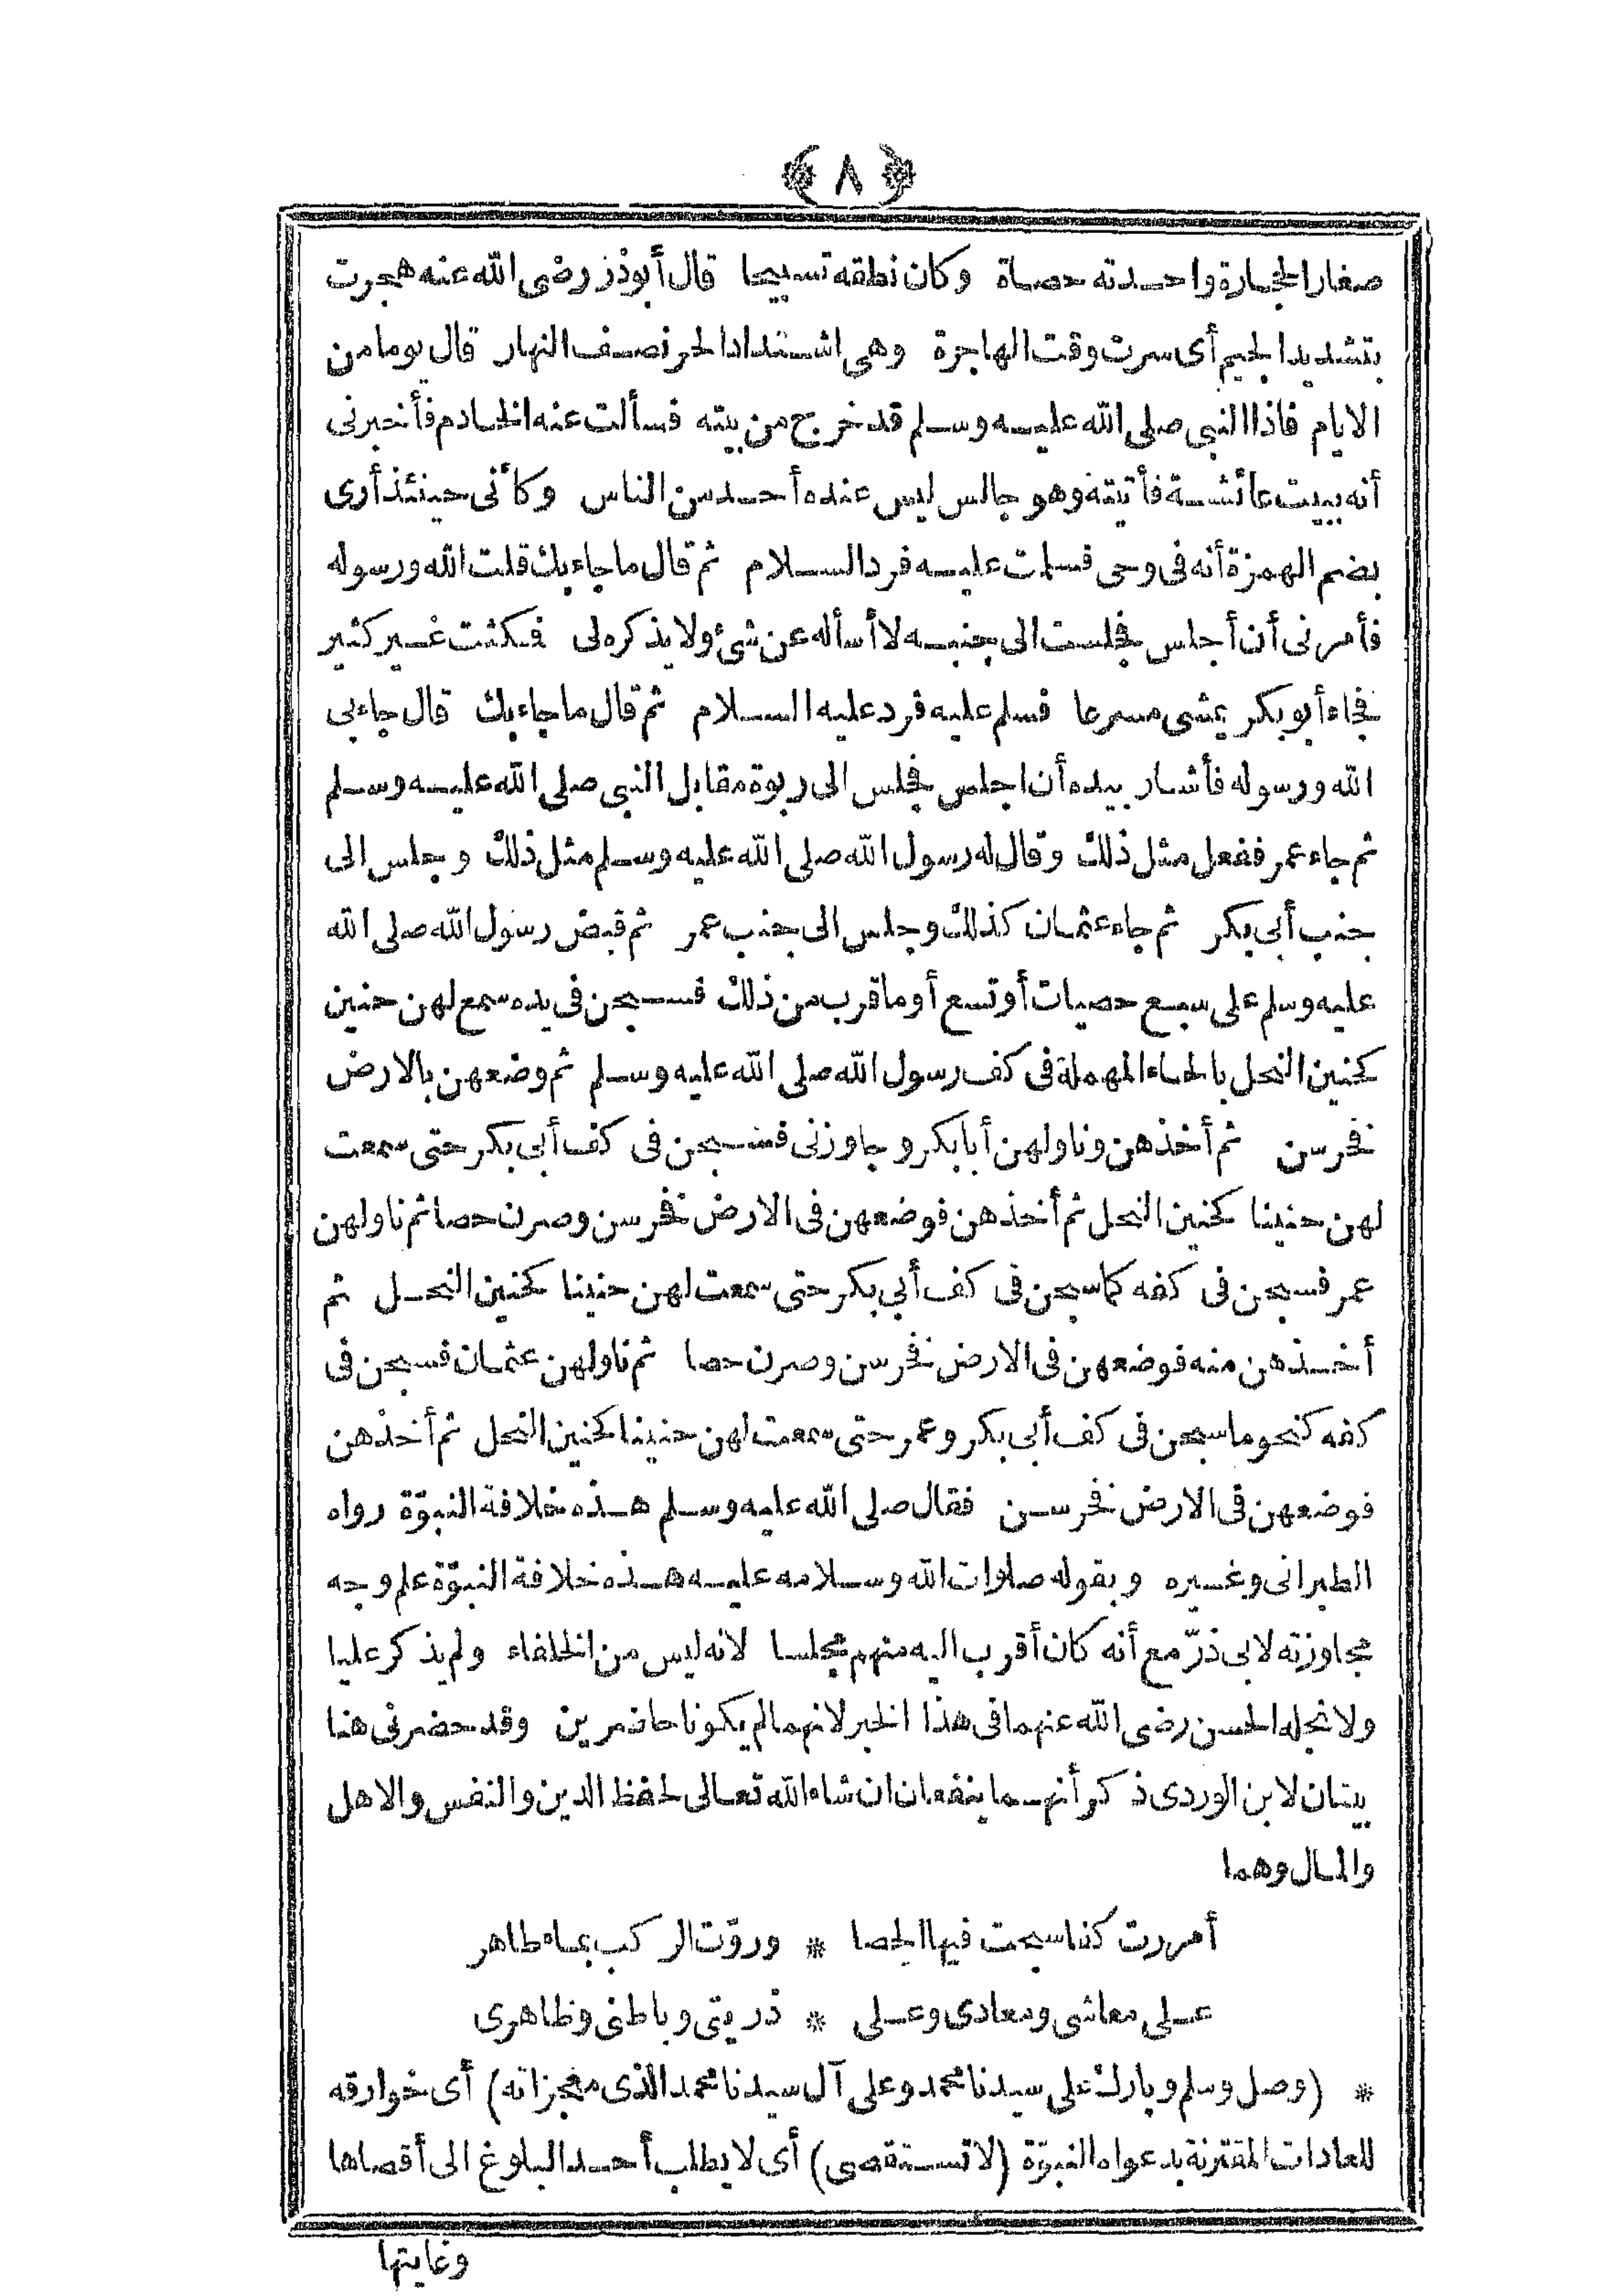 ﴿ ٨ ﴾
صغار الحجارة واحدته حصاة وكان نطقه تسبيحا قال أبوذز رضى الله عنه هجرت
بتشديد الجيم أى سرت وقت الهاجرة وهى اشتداد الحر نصف النهار قال يوما من
الايام فاذا النبى صلى الله عليه وسلم قد خرج من بيته فسألت عنه الخادم فأخبرنى
أنه ببيت عائشة فأتيته وهو جالس ليس عنده أحد من الناس وكأنى حينئذ أرى
بضم الهمزة أنه فى وحى فسلمت عليه فرد السلام ثم قال ما جاء بك قلت الله ورسوله
فأمرنى أن أجلس فجلست الى جنبه لا أسأله عن شئ ولا يذكره لى فمكثت غير كثير
فجاء أبو بكر يمشى مسرعا فسلم عليه فرد عليه السلام ثم قال ما جاء بك قال جاء بى
الله ورسوله فأشار بيده أن اجلس فجلس الى ربوة مقابل النبى صلى الله عليه وسلم
ثم جاء عمر ففعل مثل ذلك وقال له رسول الله صلى الله عليه وسلم مثل ذلك وجلس الى
جنب أبى بكر ثم جاء عثمان كذلك وجلس الى جنب عمر ثم قبض رسول الله صلى الله
عليه وسلم على سبع حصيات أو تسع أو ما قرب من ذلك فسبحن فى يده سمع لهن حنين
كحنين النحل بالحاء المهملة فى كف رسول الله صلى الله عليه وسلم ثم وضعهن بالارض
فخرسن ثم أخذهن وناولهن أبا بكر وجاوزنى فسبحن فى كف أبى بكر حتى سمعت
لهن حنينا كحنين النحل ثم أخذهن فوضعهن فى الارض فخرسن وصرن حصا ثم ناولهن
عمر فسبحن فى كفه كما سبحن فى كف أبى بكر حتى سمعت لهن حنينا كحنين النحل ثم
أخذهن منه فوضعهن فى الارض فخرسن وصرن حصا ثم ناولهن عثمان فسبحن فى
كفه كنحو ما سبحن فى كف أبى بكر وعمر حتى سمعت لهن حنينا كحنين النحل ثم أخذهن
فوضعهن فى الارض فخرسن فقال صلى الله عليه وسلم هذه خلافة النبوّة رواه
الطبرانى وغيره وبقوله صلوات الله وسلامه عليه هذه خلافة النبوّة علم وجه
مجاوزته لابى ذرّ مع أنه كان أقرب اليه منهم مجلسا لانه ليس من الخلفاء ولم يذكر عليا
ولا نجله الحسن رضى الله عنهما فى هذا الخبر لانهما لم يكونا حاضرين وقد حضرنى هنا
بيتان لابن الوردى ذكر أنهما ينفعان ان شاء الله تعالى لحفظ الدين والنفس والاهل
والمال وهما
أمررت كفا سبحت فيها الحصا * وروّت الركب بماء طاهر
على معاشى ومعادى وعلى * ذريتى وباطنى وظاهرى
* (وصل وسلم وبارك على سيدنا محمد وعلى آل سيدنا محمد الذى معجزاته) أى خوارقه
للعادات المقترنة بدعواه النبوّة (لا تستقصى) أى لا يطلب أحد البلوغ الى أقصاها
وغايتها